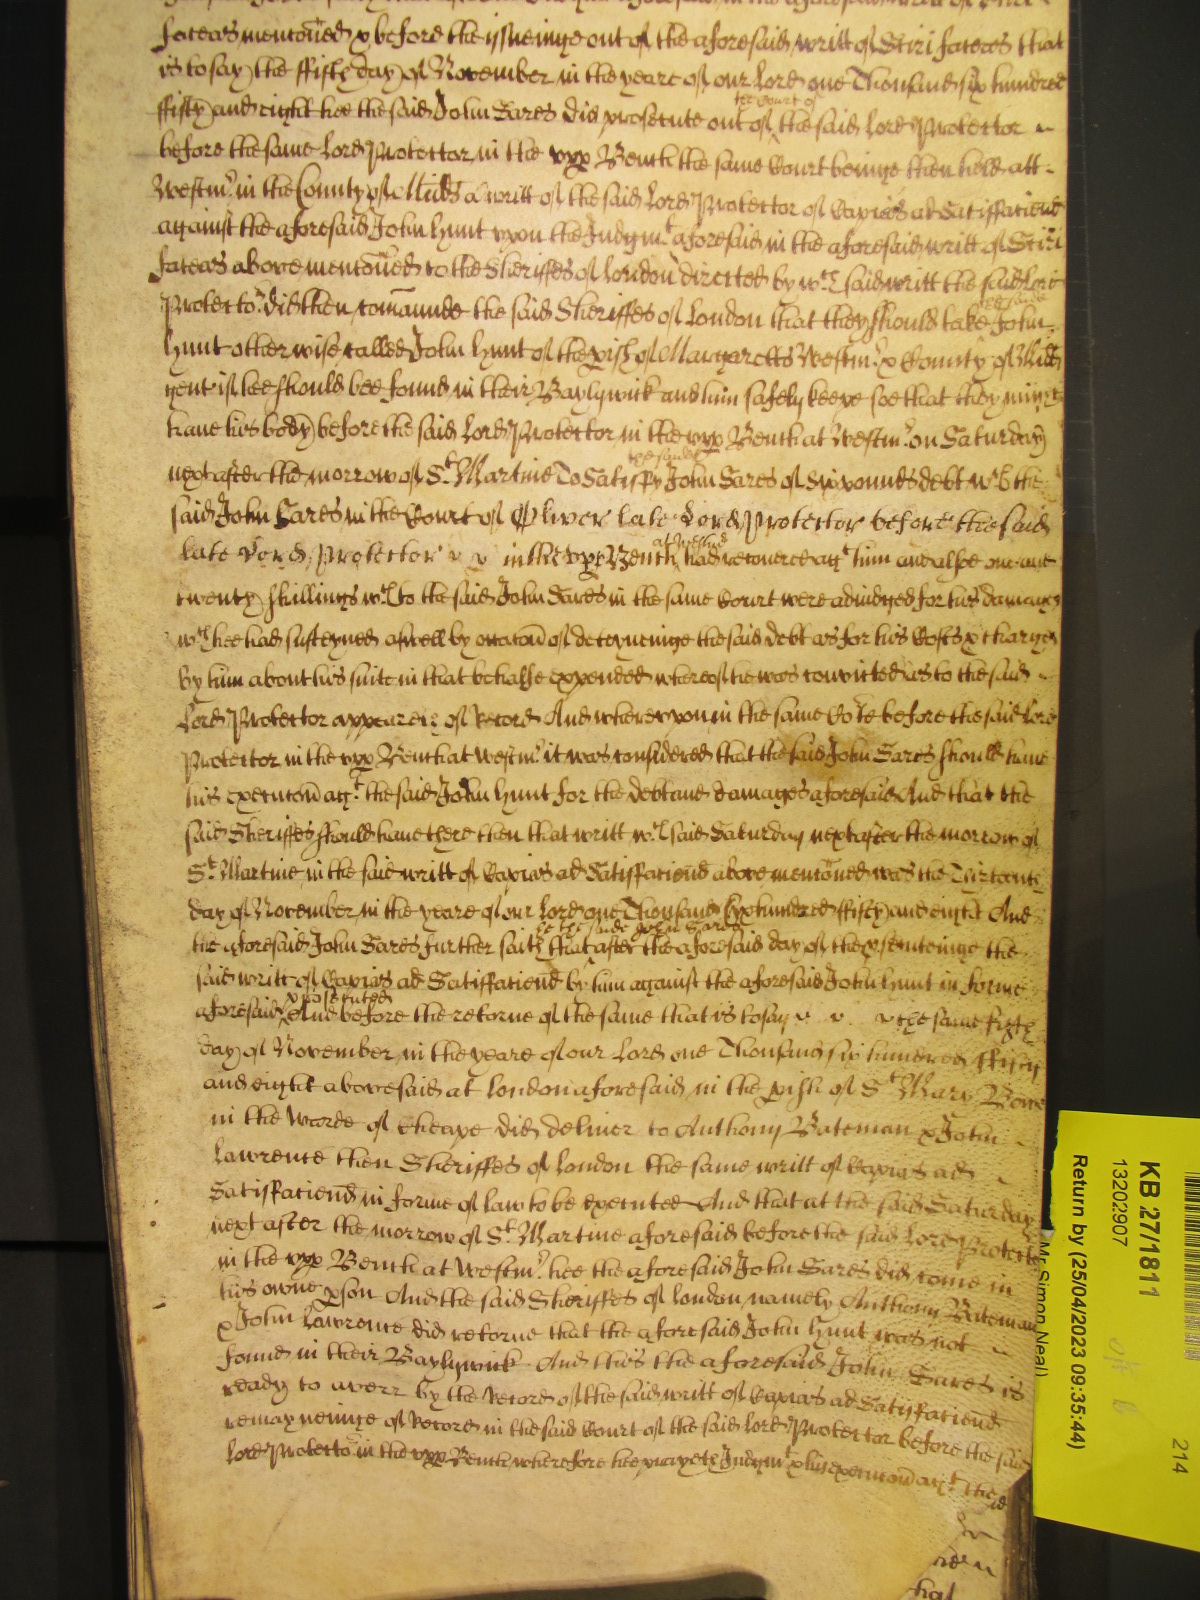 facias mentoned & before the issueinge out of the aforesaid writt of Sciri facias that
is to say the ffifth day of November in the yeare of our Lord one Thousand six hundred
ffifty and eight hee the said John Sares did prosecute out of the Court of the said Lord Protector
before the same Lord Protector in the upp Bench the same Court beinge then held att
Westmr in the County of Midds a writt of the said Lord Protector of Capias ad Satisfaciend
against the aforesaid John Hunt upon the Judgmt aforesaid in the aforesaid writt of Sciri
facias above mentoned to the Sheriffes of London directed by wch said writt the said Lord
Protector did then comaunde the said Sheriffes of London that they should take John
Hunt otherwise called John Hunt of the pish of Margaretts Westmr & County of Midds
gent if hee should bee found in their Baylywick and him safely keepe soe that they might
have his body before the said Lord Protector in the upp Bench at Westmr on Saturday
next after the morrow of St Martine To Satisfy the said John Sares of six pounds debt wch the
said John Sares in the Court of Oliver late Lord Protector before the said
late Lord Protector in the upp Bench at Westmr had recovered agt him and alsoe one and
twenty shillings wch to the said John Sares in the same Court were adiudged for his damages
wch hee had susteyned aswell by occacon of deteyneinge the said debt as for his Costs & charges
by him about his suite in that behalfe expended whereof he was convicted as to the said
Lord Protector appeares of Record And whereupon in the same Cote before the said Lord
Protector in the upp Bench at Westmr it was considered that the said John Sares should have
his execucon agt the said John Hunt for the debt and damages aforesaid And that the
said Sheriffes should have there then that writt wch said Saturday next after the morrow of
St Martine in the said writt of Capias ad Satisfaciend above mentoned was the Thirteenth
day of November in the yeare of our Lord one Thousand six hundred ffifty and eight And
the aforesaid John Sares further saith that after he the said John Sares the aforesaid day of the psecuteinge the
said writt of Capias ad Satisfaciend by him against the aforesaid John Hunt in forme
aforesaid prosecuted And before the retorne of the same that is to say the same fifth
day of November in the yeare of our Lord one Thousand six hundred ffifty
and eight abovesaid at London aforesaid in the pish of St Mary Bowe
in the Warde of Cheape did deliver to Anthony Bateman & John
Lawrence then Sheriffes of London the same writt of Capias ad
Satisfaciend in forme of law to be executed And that at the said Saturday
next after the morrow of St Martine aforesaid before the said Lord Protector
in the upp Bench at Westmr hee the aforesaid John Sares did come in
his owne pson And the said Sheriffes of London namely Anthony Bateman
& John Lawrence did retorne that the aforesaid John Hunt was not
found in their Baylywick And this the aforesaid John Sares is
ready to averr by the Record of the said writt of Capias ad Satisfaciend
remayneinge of Record in the said Court of the said Lord Protector before the said
Lord Protector in the upp Bench wherefore hee prayeth Judgmt & his execucon agt the
KB 27/1811
13202907
Return by (25/04/2023 09:35:44)
Mr Simon Neal)
214